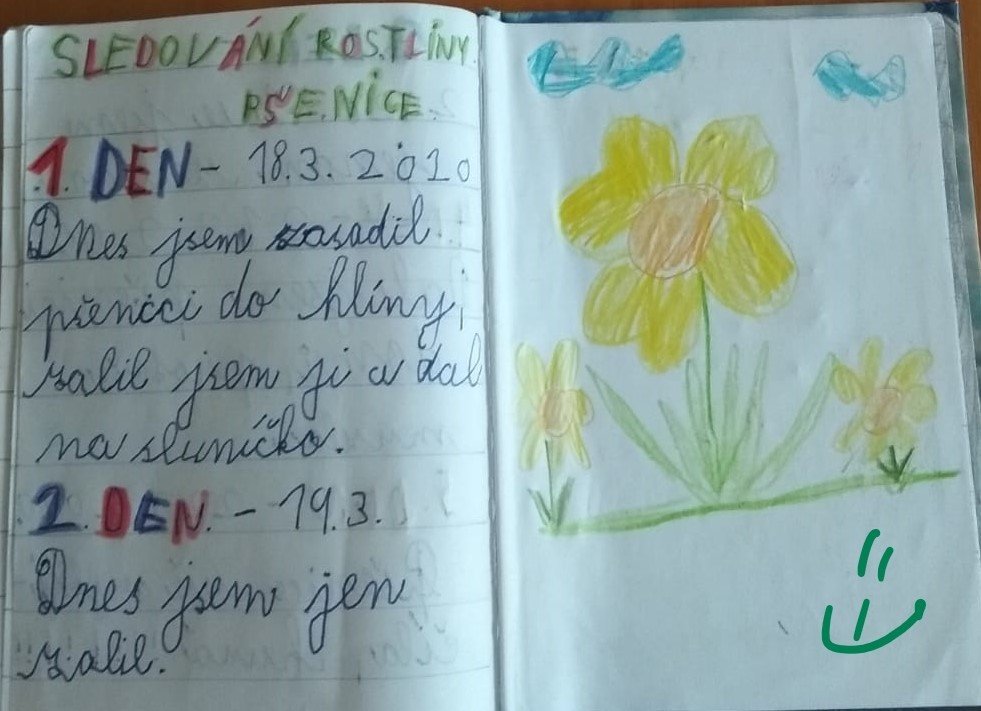 SLEDOVÁNÍ ROSTLINY
PŠENICE
1. DEN - 18.3. 2020
Dnes jsem zasadil
pšenici do hlíny,
zalil jsem ji a dal
na sluníčko.
2. DEN. - 19.3.
Dnes jsem jen
zalil.